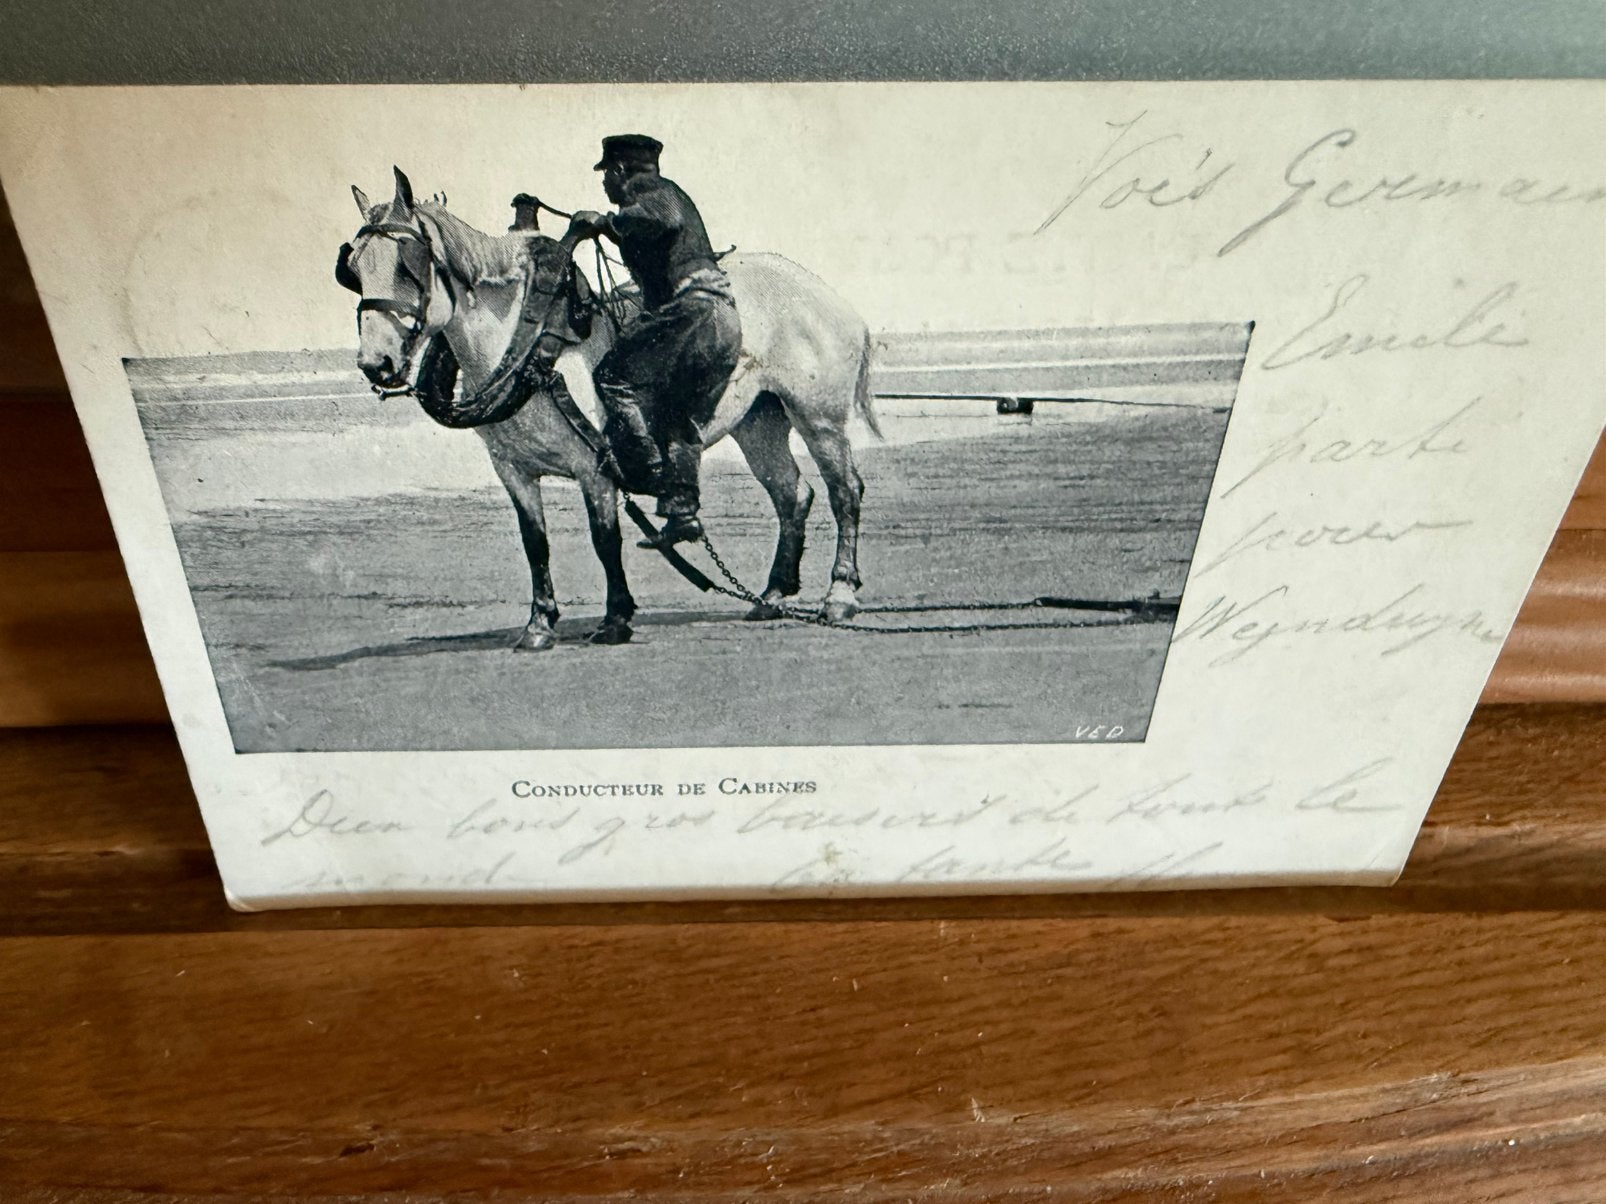 Vois Germaine
Emile
parti
pour
Weynduyne
VED
CONDUCTEUR DE CABINES
Deux bons gros baisers de tout le
mond
ta tante